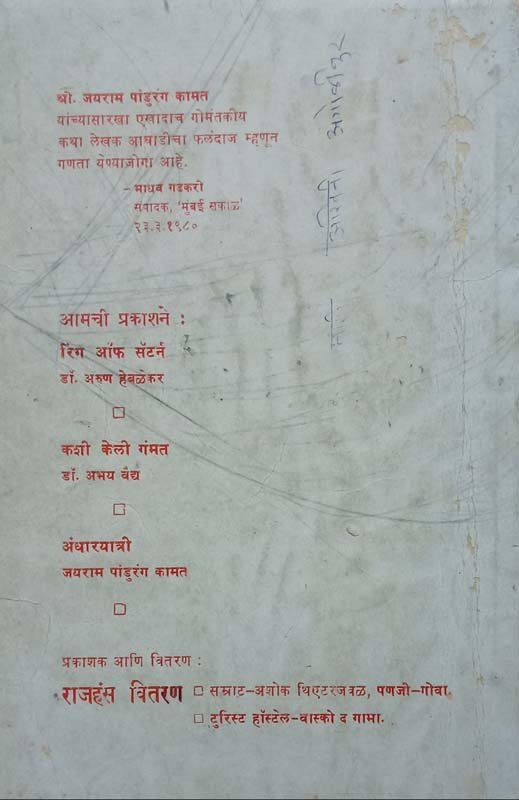 श्री. जयराम पांडुरंग कामत
यांच्यासारखा एखादाच गोमंतकीय
कथा लेखक आघाडीचा फलंदाज म्हणून
गणता येण्याजोगा आहे.
– माधव गडकरी
संपादक, 'मुंबई सकाळ'
२३.३.१९८०
आमची प्रकाशने :
रिंग ऑफ सॅटर्न
डॉ. अरुण हेबळेकर
कशी केली गंमत
डॉ. अभय वैद्य
अंधारयात्री
जयराम पांडुरंग कामत
प्रकाशक आणि वितरण :
राजहंस वितरण □ सम्राट–अशोक थिएटरजवळ, पणजी–गोवा.
□ टुरिस्ट हॉस्टेल–वास्को द गामा.